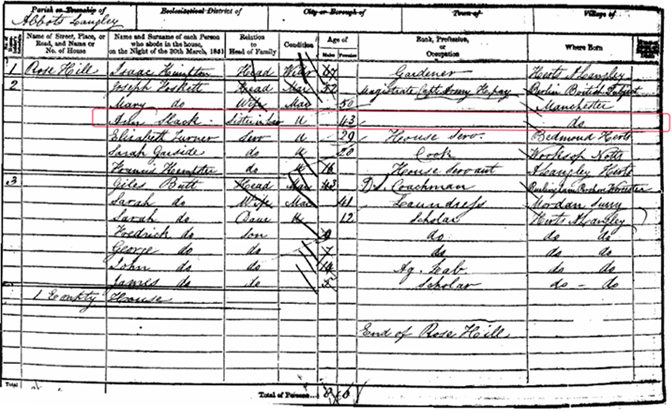 Parish or Township of Ecclesiastical District of City or Borough of Town of Village of
Abbots Langley
Name of Street, Place, or Road, and Name or No. of House Name and Surname of each Person who abode in the house, on the Night of the 30th March, 1851 Relation to Head of Family Condition Age of Males Females Rank, Profession, or Occupation Where Born
1 Rose Hill Isaac Head 67 Gardener Herts A Langley
2 Joseph Head Mar 57 Magistrate Capt Army H. pay Berlin British Subject
Mary do Wife Mar 50 Manchester
Ann Slack Sister in law U 43 do
Elizabeth Turner Serv U 29 House Serv. Bedmond Herts
Sarah Garside do U 20 Cook Notts
Francis do U 16 House Servant A Langley Herts
3 Giles Butt Head Mar 43 Coachman
Sarah do Wife Mar 41 Laundress Mordan Surry
Sarah do Daur U 12 Scholar Herts A Langley
Fredrick do Son 9 do do do
George do do 7 do do do
John do do 14 Ag. Lab do do
James do do 5 Scholar do - do
1 Empty House
End of Rose Hill
Total Total of Persons